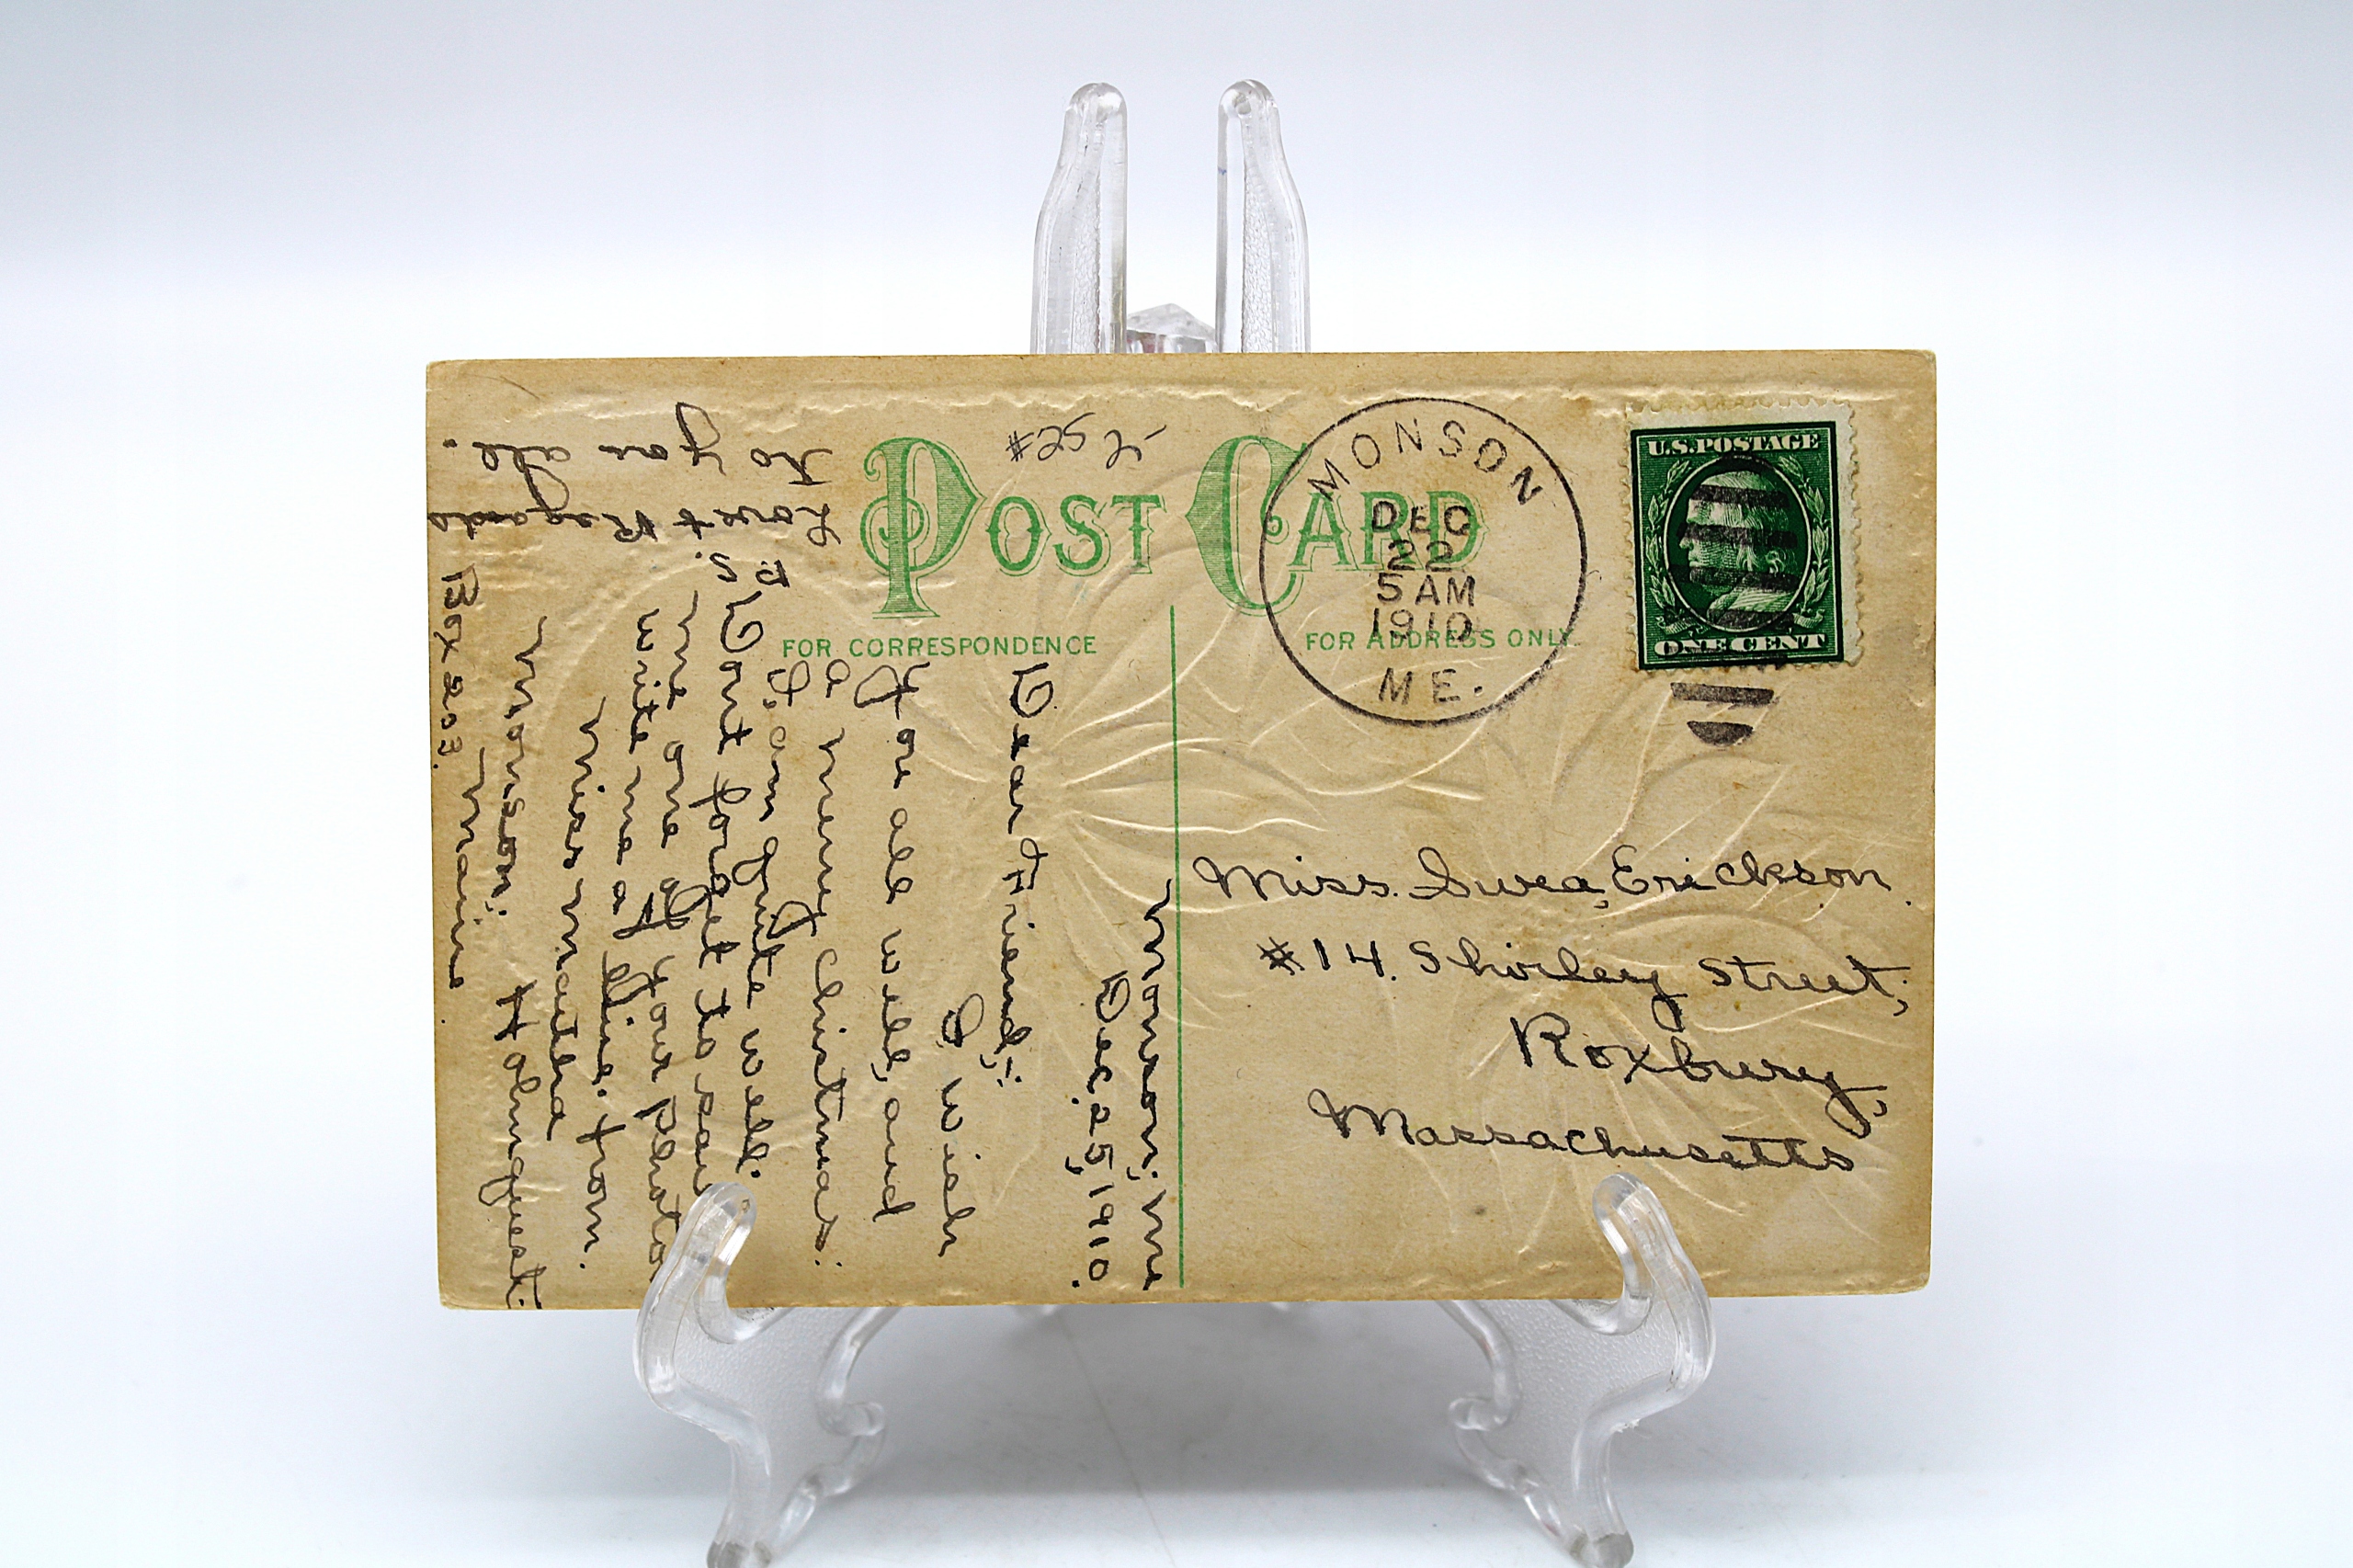 POST CARD
FOR CORRESPONDENCE
FOR ADDRESS ONLY
MONSON
DEC
22
5 AM
1910
ME.
U.S. POSTAGE
ONE CENT
Miss. Swea, Erickson.
#14. Shirley Street,
Roxbury,
Massachusetts
Monson, Me
Dec. 25, 1910.
Dear Friend,:
I wish
you all well, and
a merry christmas:
I. am quite well.
Dont forget to
me one of your photo
write me a line. from.
Miss Matilda
Monson. Holmquest.
Maine
Box 203.
P.S.
Love & Regards
to you all.